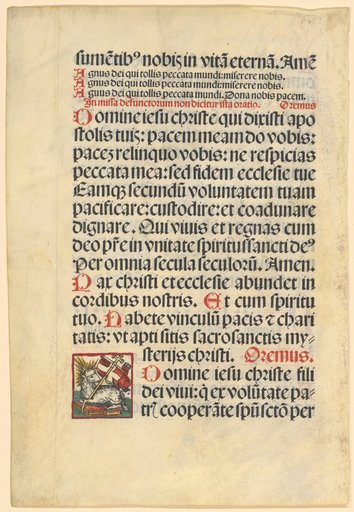 sumẽtibꝰ nobis in vitã eternã. Amẽ
Agnus dei qui tollis peccata mundi: miserere nobis.
Agnus dei qui tollis peccata mundi: miserere nobis.
Agnus dei qui tollis peccata mundi. Dona nobis pacem.
In missa defunctorum non dicitur ista oratio. Oremus
Domine iesu christe qui dixisti apo
stolis tuis: pacem meam do vobis:
pacez relinquo vobis: ne respicias
peccata mea: sed fidem ecclesie tue
Eamqꝫ secundũ voluntatem tuam
pacificare: custodire: et coadunare
dignare. Qui viuis et regnas cum
deo pr̃e in vnitate spiritussancti deꝰ
Per omnia secula seculorũ. Amen.
Pax christi et ecclesie abundet in
cordibus nostris. Et cum spiritu
tuo. Habete vinculũ pacis ⁊ chari
tatis: vt apti sitis sacrosanctis my-
sterijs christi. Oremus.
Domine iesu christe fili
dei viui: q̇ ex volũtate pa-
tr̃ cooperãte spũsctõ per